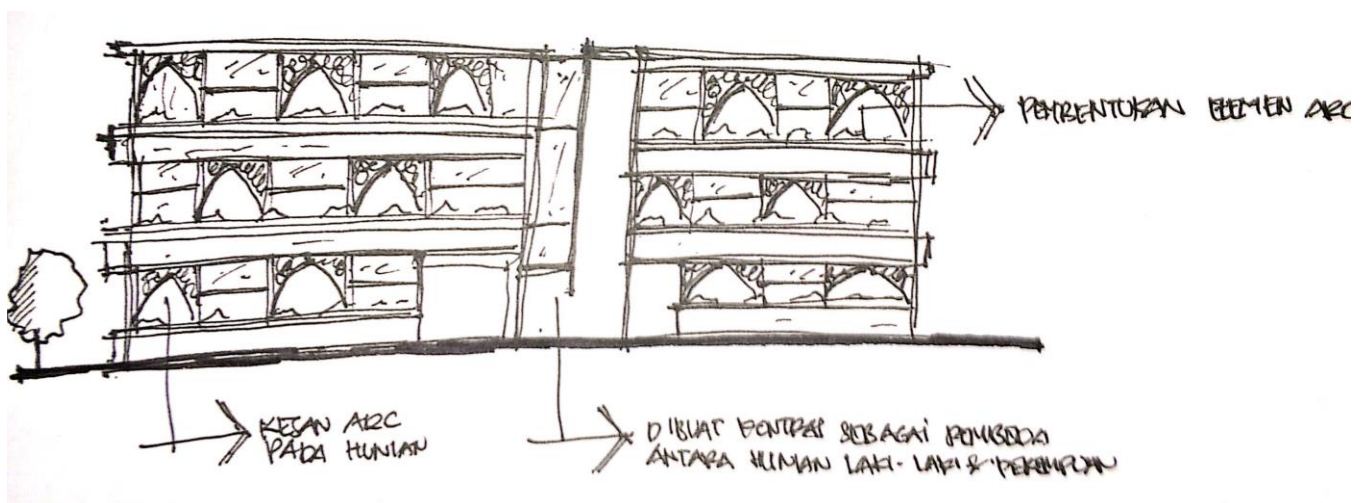 PEMBENTUKAN ELEMEN ARC
KESAN ARC
PADA HUNIAN
DIBUAT KONTRAS SEBAGAI PEMBEDA
ANTARA HUNIAN LAKI-LAKI & PEREMPUAN